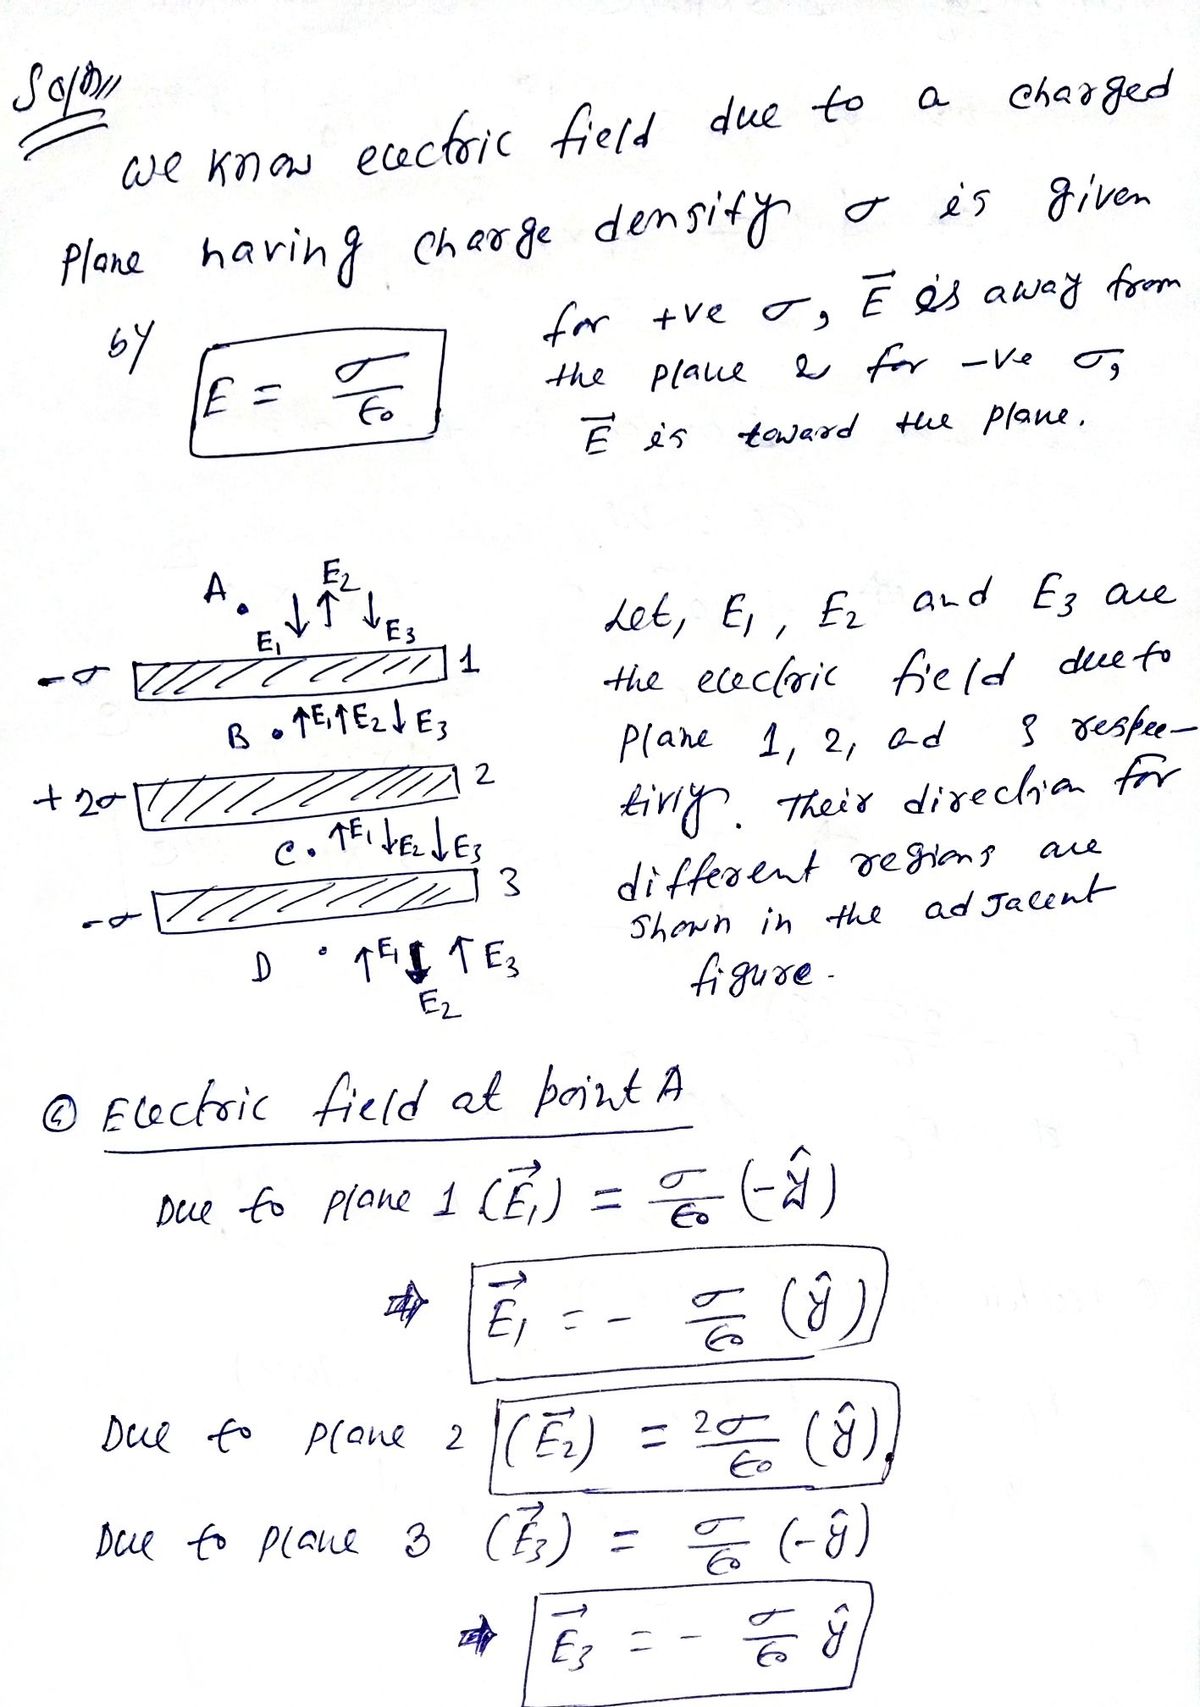 Soln
We know electric field due to a charged
Plane having charge density σ is given
by E = σ/ϵ0
for +ve σ, E⃗ is away from
the plane & for -ve σ,
E⃗ is toward the plane.
A. E1 ↓ ↑ E2 ↓ E3
-σ 1
B . ↑E1 ↑E2 ↓E3
+2σ 2
C. ↑E1 ↓E2 ↓E3
-σ 3
D . ↑E1 ↓ E2 ↑ E3
Let, E1, E2 and E3 are
the electric field due to
Plane 1, 2, ad 3 respec-
tivly. Their direction for
different regions are
shown in the adjacent
figure.
Electric field at point A
Due to plane 1 (E⃗1) = σ/ϵ0 (-ŷ)
⇒ E⃗1 = - σ/ϵ0 (ŷ)
Due to plane 2 (E⃗2) = 2σ/ϵ0 (ŷ).
Due to plane 3 (E⃗3) = σ/ϵ0 (-ŷ)
⇒ E⃗3 = - σ/ϵ0 ŷ